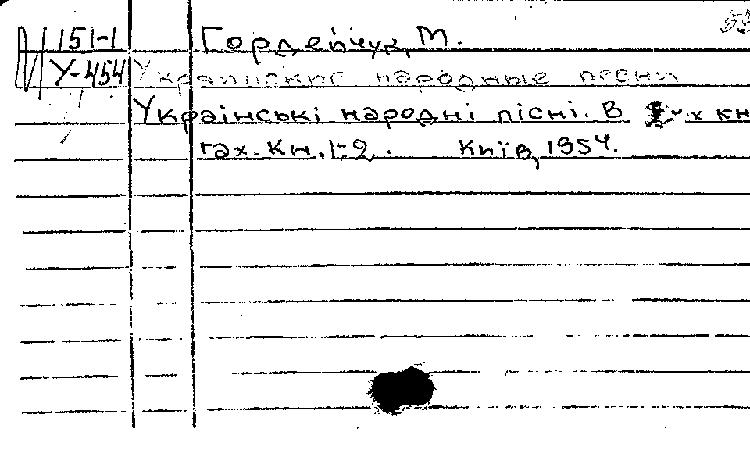 151-1 Гордейчук, М.
У-454 Украинские народные песни
Українські народні пісні. В 2-х кн
гах. Кн. 1-2. Київ, 1954.